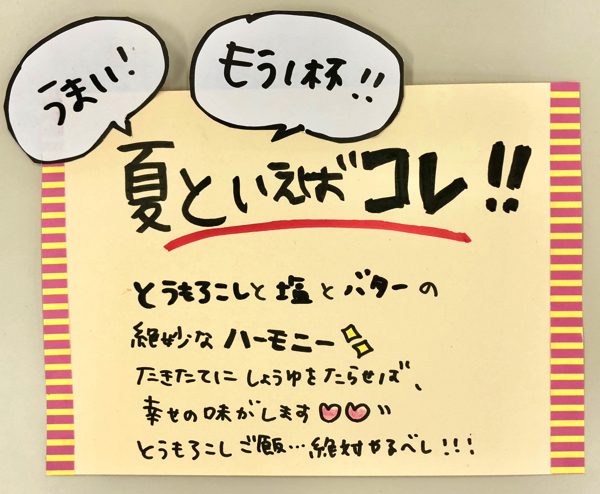 うまい!
もう1杯!!
夏といえばコレ!!
とうもろこしと塩とバターの
絶妙なハーモニー
たきたてにしょうゆをたらせば、
幸せの味がします
とうもろこしご飯…絶対やるべし!!!